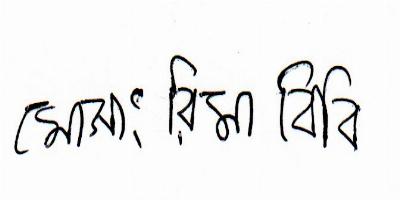 মোসাঃ রিমা বিবি